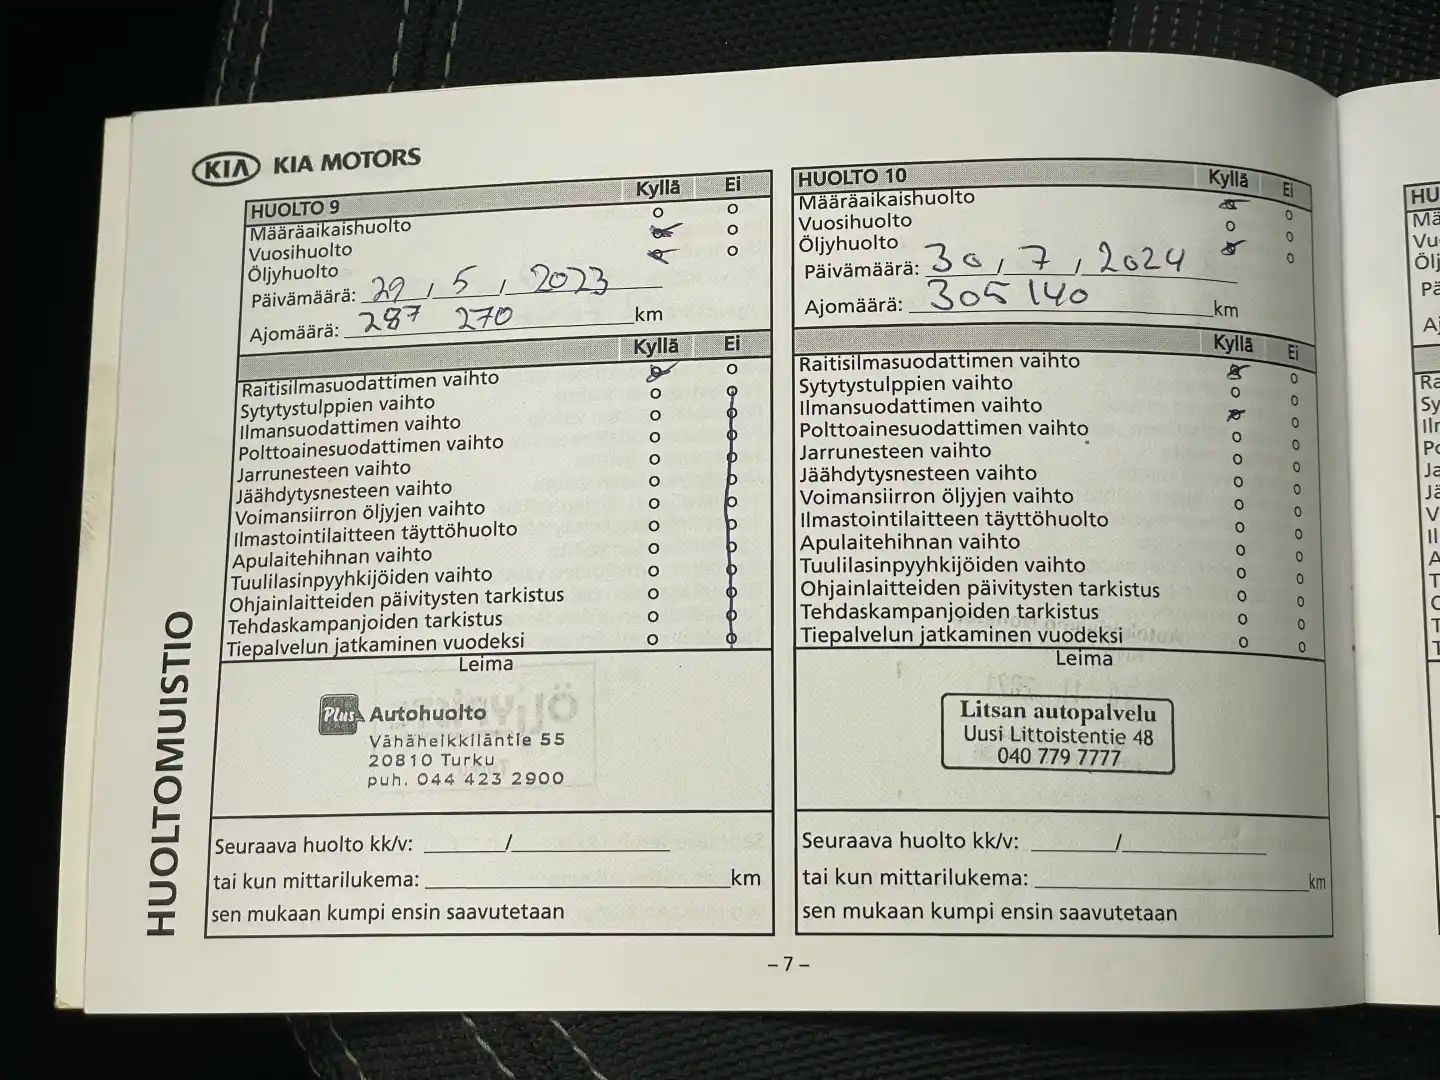 KIA KIA MOTORS
HUOLTOMUISTIO
HUOLTO 9 Kyllä Ei
Määräaikaishuolto o o
Vuosihuolto o o
Öljyhuolto o o
Päivämäärä: 29 / 5 / 2023
Ajomäärä: 287 270 km
Kyllä Ei
Raitisilmasuodattimen vaihto o o
Sytytystulppien vaihto o o
Ilmansuodattimen vaihto o o
Polttoainesuodattimen vaihto o o
Jarrunesteen vaihto o o
Jäähdytysnesteen vaihto o o
Voimansiirron öljyjen vaihto o o
Ilmastointilaitteen täyttöhuolto o o
Apulaitehihnan vaihto o o
Tuulilasinpyyhkijöiden vaihto o o
Ohjainlaitteiden päivitysten tarkistus o o
Tehdaskampanjoiden tarkistus o o
Tiepalvelun jatkaminen vuodeksi o o
Leima
Plus Autohuolto
Vähäheikkiläntie 55
20810 Turku
puh. 044 423 2900
Seuraava huolto kk/v: /
tai kun mittarilukema: km
sen mukaan kumpi ensin saavutetaan
HUOLTO 10 Kyllä Ei
Määräaikaishuolto o o
Vuosihuolto o o
Öljyhuolto o o
Päivämäärä: 30 / 7 / 2024
Ajomäärä: 305 140 km
Kyllä Ei
Raitisilmasuodattimen vaihto o o
Sytytystulppien vaihto o o
Ilmansuodattimen vaihto o o
Polttoainesuodattimen vaihto o o
Jarrunesteen vaihto o o
Jäähdytysnesteen vaihto o o
Voimansiirron öljyjen vaihto o o
Ilmastointilaitteen täyttöhuolto o o
Apulaitehihnan vaihto o o
Tuulilasinpyyhkijöiden vaihto o o
Ohjainlaitteiden päivitysten tarkistus o o
Tehdaskampanjoiden tarkistus o o
Tiepalvelun jatkaminen vuodeksi o o
Leima
Litsan autopalvelu
Uusi Littoistentie 48
040 779 7777
Seuraava huolto kk/v: /
tai kun mittarilukema: km
sen mukaan kumpi ensin saavutetaan
– 7 –